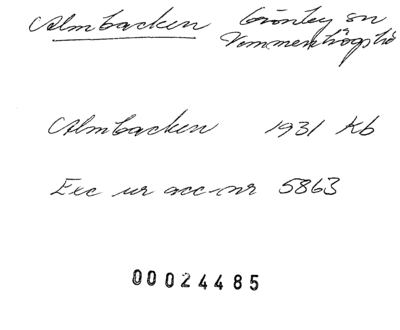 Almbacken Grönby sn
Vemmenhögs hd
Almbacken 1931 Kb
Exc ur acc-nr 5863
00024485